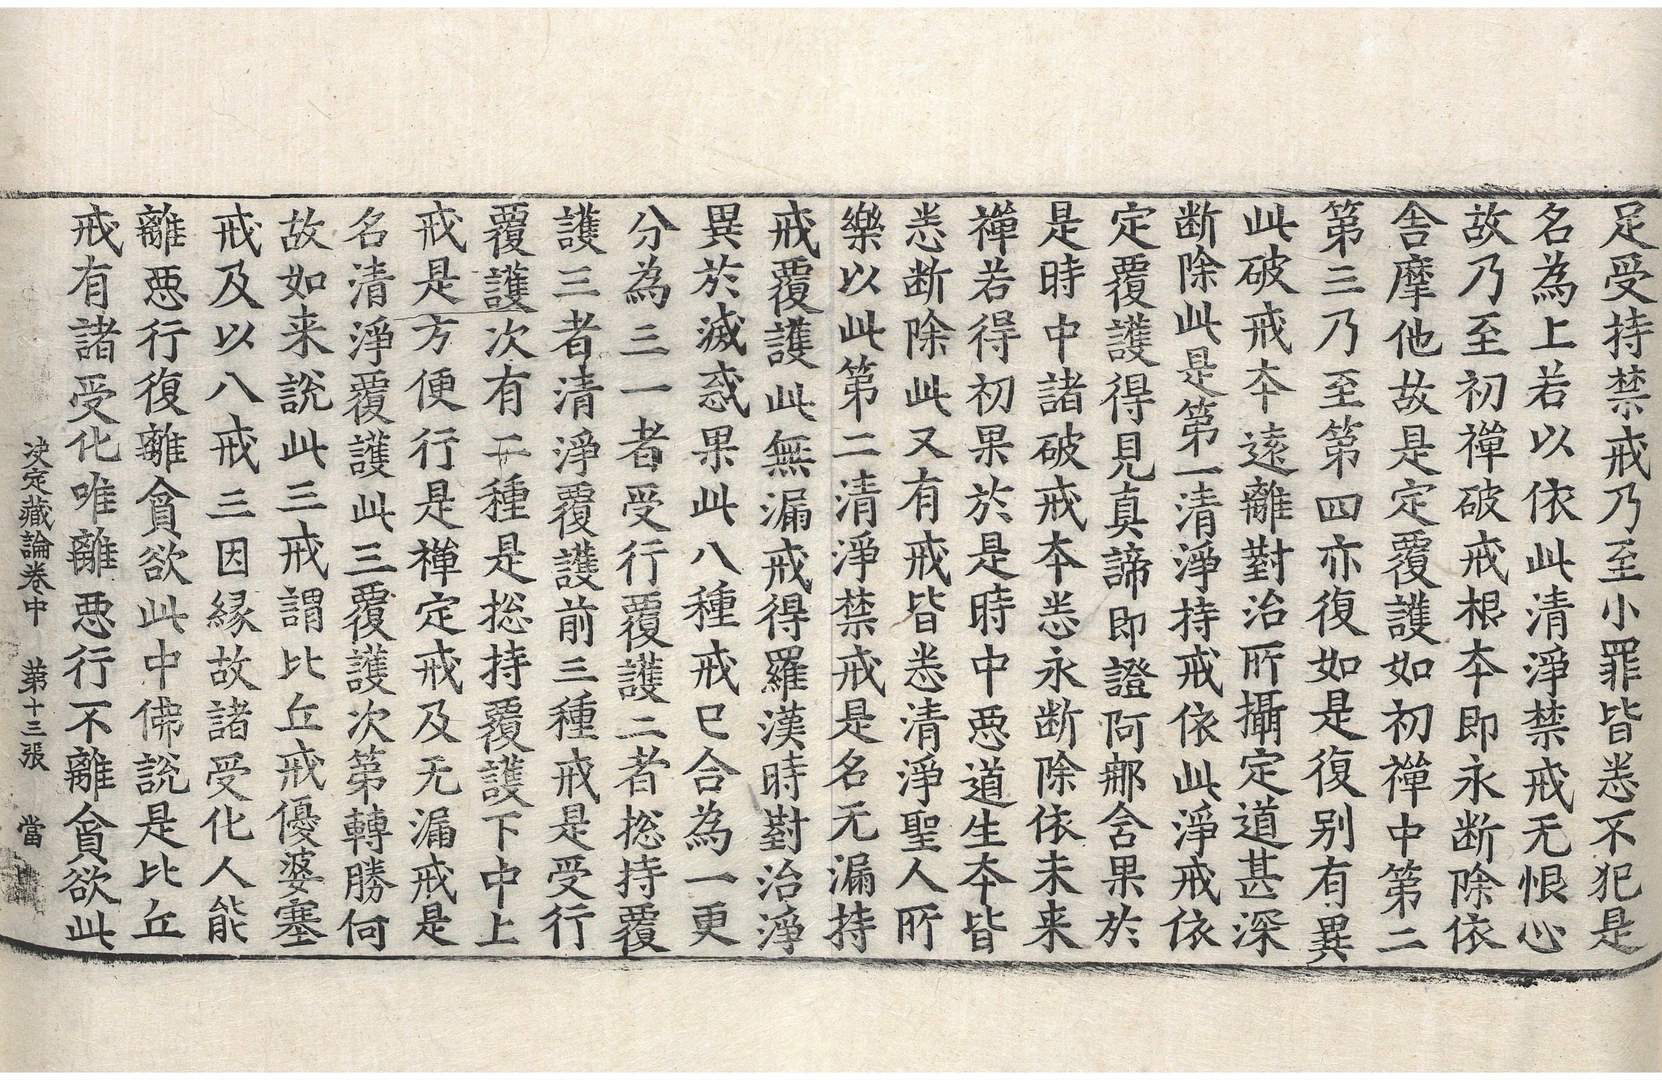 足受持禁戒乃至小罪皆悉不犯是
名為上若以依此清淨禁戒无恨心
故乃至初禪破戒根夲即永断除依
舎摩他故是定覆護如初禪中第二
第三乃至第四亦復如是復别有異
此破戒夲遠離對治所攝定道甚深
断除此是第一清淨持戒依此淨戒依
定覆護得見真諦即證阿那含果於
是時中諸破戒夲悉永断除依未来
禪若得初果於是時中惡道生夲皆
悉断除此又有戒皆悉清淨聖人所
樂以此第二清淨禁戒是名无漏持
戒覆護此無漏戒得羅漢時對治淨
異於滅惑果此八種戒已合為一更
分為三一者受行覆護二者捴持覆
護三者清淨覆護前三種戒是受行
覆護次有二種是捴持覆護下中上
戒是方便行是禪定戒及无漏戒是
名清淨覆護此三覆護次第轉勝何
故如来說此三戒謂比丘戒優婆塞
戒及以八戒三因緣故諸受化人能
離惡行復離貪欲此中佛說是比丘
戒有諸受化唯離惡行不離貪欲此
决定藏論卷中 第十三張 當